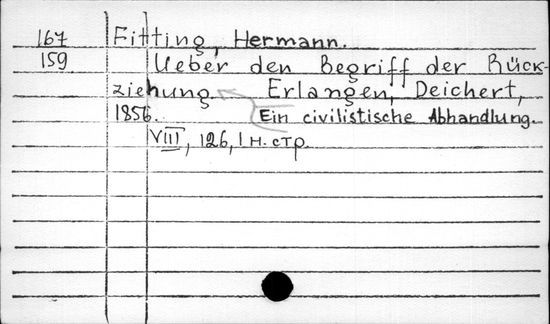 167 Fitting, Hermann.
159 Ueber den Begriff der Rück-
ziehung Erlangen, Deichert,
1856. Ein civilistische Abhandlung.
VIII, 126, 1 н. стр.